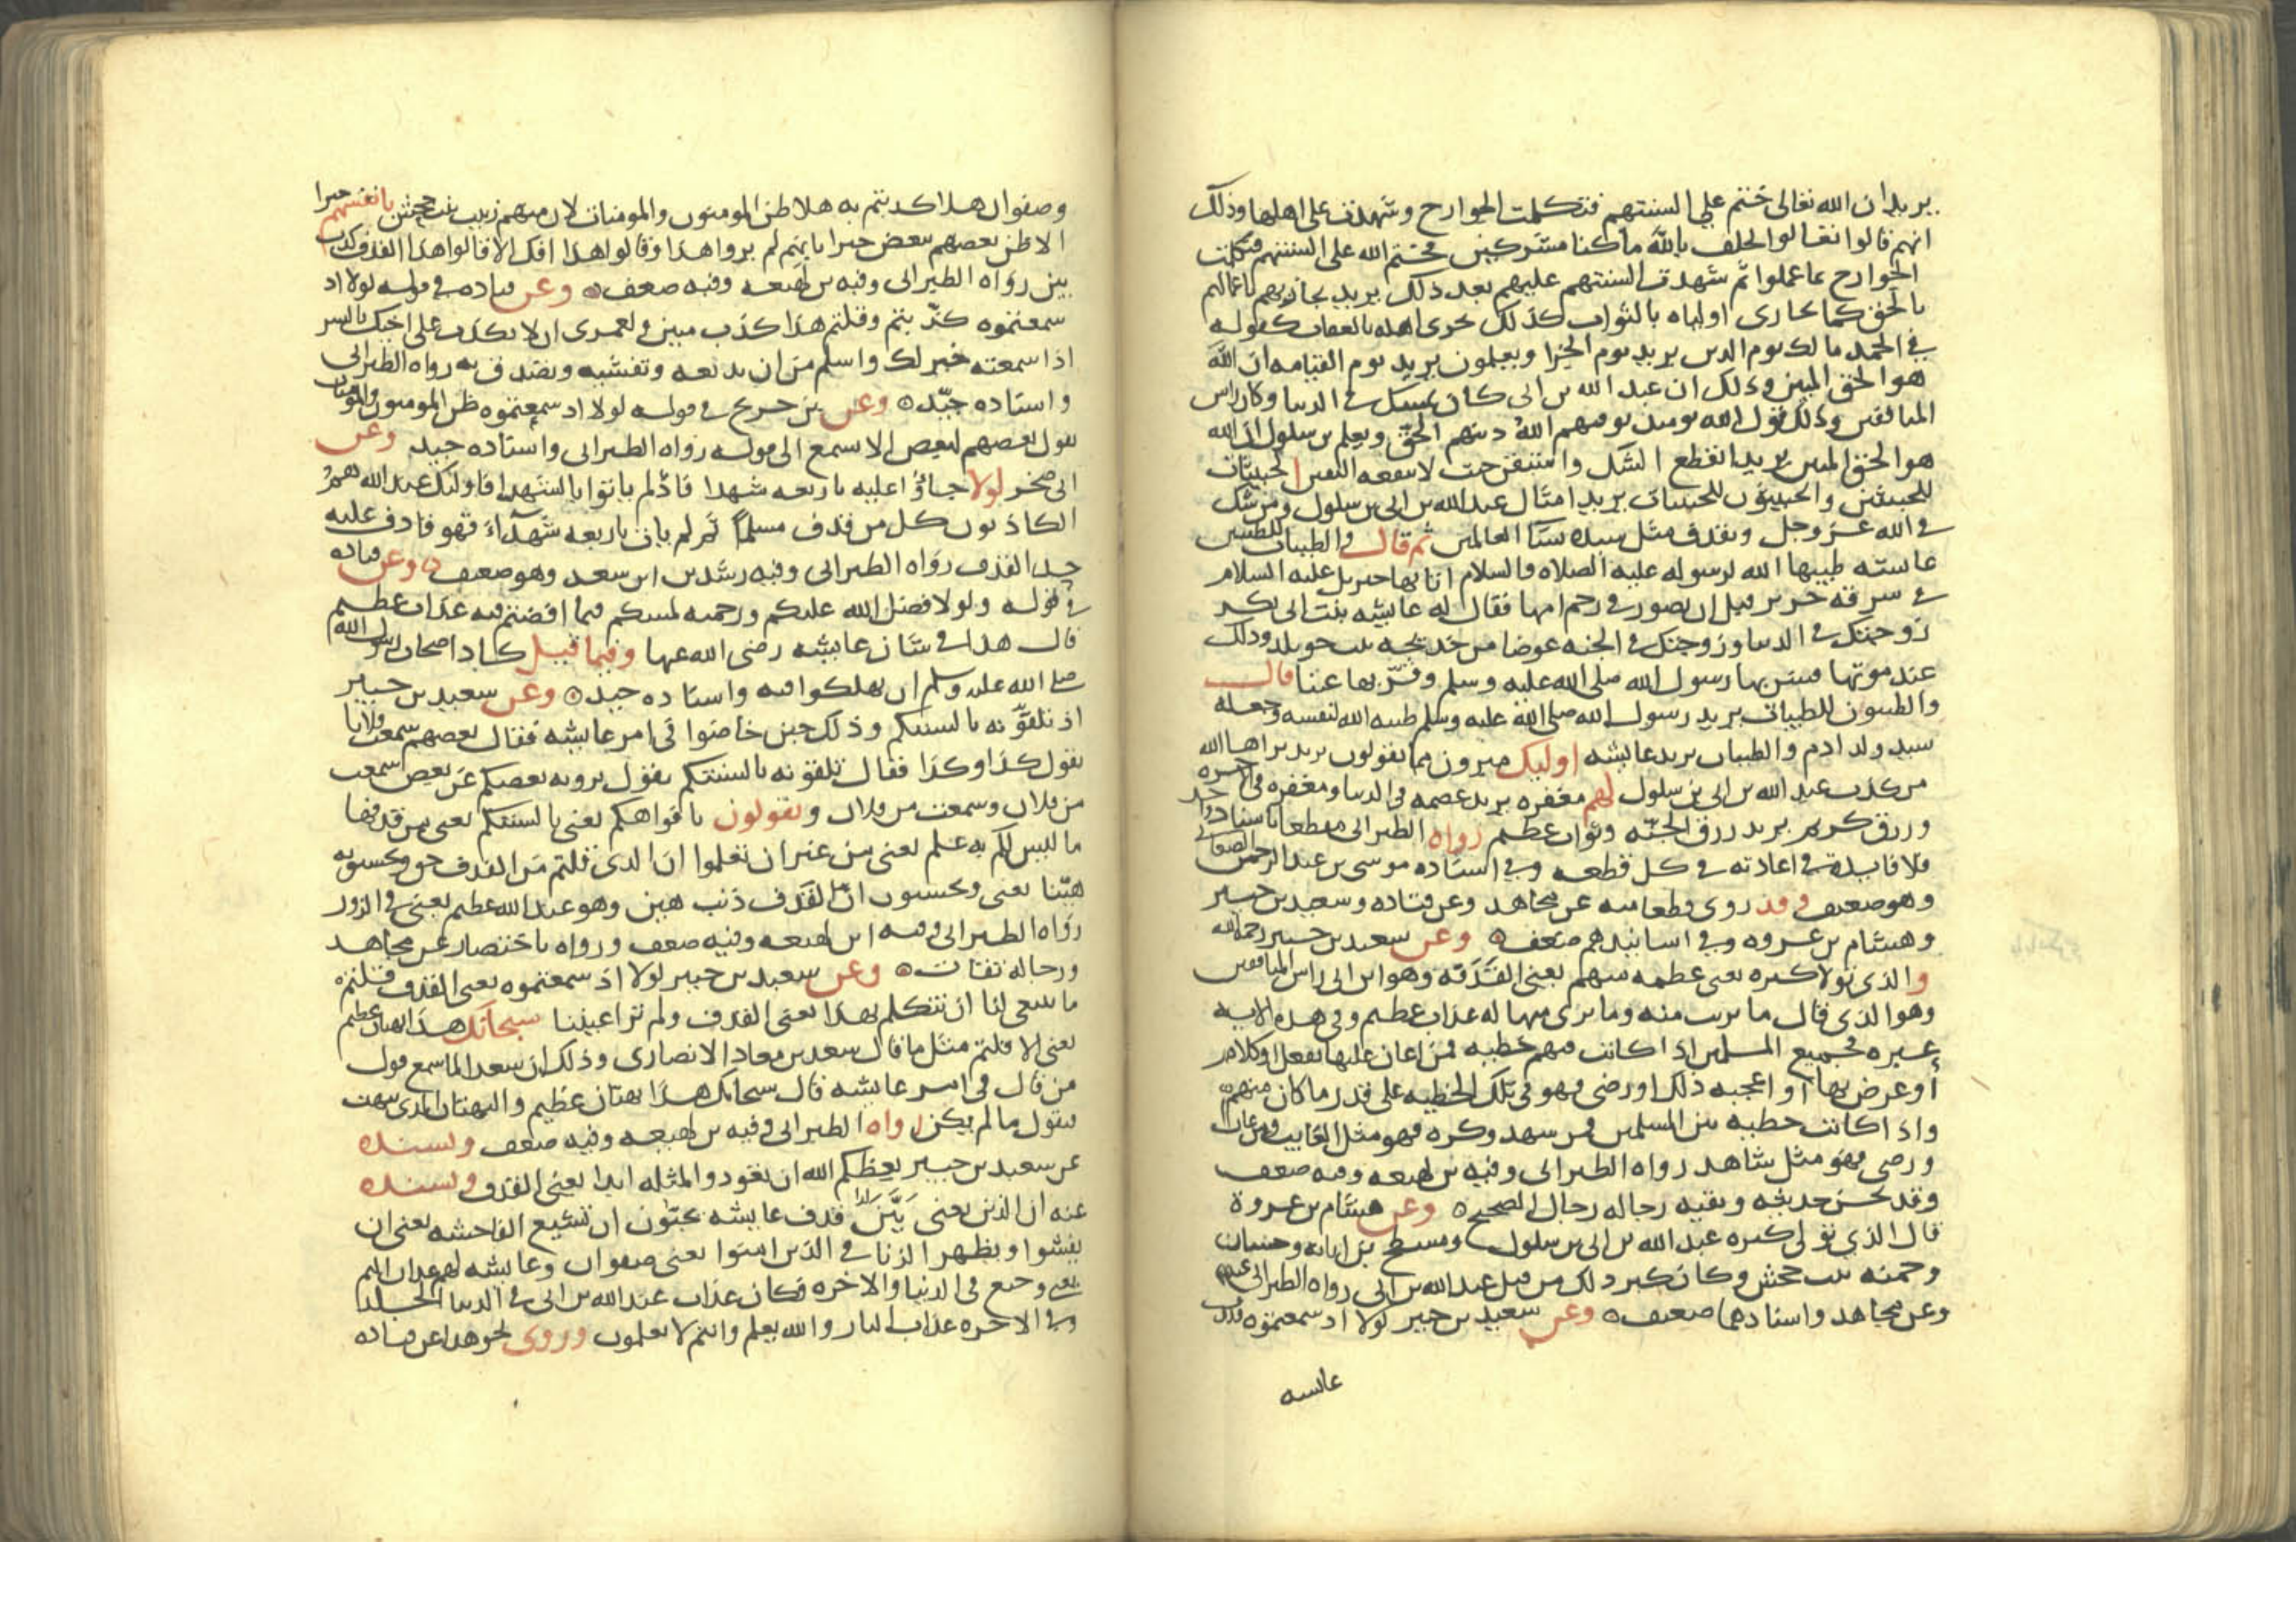 يريد ان الله تعالى ختم على السنتهم فتكلمت الجوارح وشهدت على اهلها وذلك
انهم قالوا تعالوا نحلف بالله ما كنا مشركين فختم الله على السنتهم فتكلمت
الجوارح بما عملوا ثم شهدت السنتهم عليهم بعد ذلك يريد يجازيهم باعمالهم
بالحق كما يجازي اولياه بالثواب كذلك يجزي اهله بالعقاب كقوله
في الحمد مالك يوم الدين يريد يوم الجزا ويعلمون يريد يوم القيامه ان الله
هو الحق المبين وذلك ان عبد الله بن ابي كان يشك في الدنيا وكان راس
المنافقين وذلك قول الله يومئذ يوفيهم الله دينهم الحق ويعلم بن سلول ان الله
هو الحق المبين يريد انقطع الشك واستيقن حيث لا ينفعه اليقين الخبيثات
للخبيثين والخبيثون للخبيثات يريد امثال عبد الله بن ابي بن سلول ومن شك
في الله عز وجل ويقذف مثل سيده نسا العالمين ثم قال والطيبات للطيبين
عايشه طيبها الله لرسوله عليه الصلاه والسلام اتا بها جبريل عليه السلام
في سرقه حرير قبل ان تصور في رحم امها فقال له عايشه بنت ابي بكر
زوجتك في الدنيا وزوجتك في الجنه عوضا من خديجه بنت خويلد وذلك
عند موتها فبشر بها رسول الله صلى الله عليه وسلم وقر بها عينا قال
والطيبون للطيبات يريد رسول الله صلى الله عليه وسلم طيبه الله لنفسه وجعله
سيد ولد ادم والطيبات يريد عايشه اوليك مبرون مما يقولون يريد براها الله
من كذب عبد الله بن ابي بن سلول لهم مغفره يريد عصمه في الدنيا ومغفره في الاخره
ورزق كريم يريد رزق الجنه وثواب عظيم رواه الطبراني مقطعا باسناد واحد
فلا فايدة في اعادته في كل قطعه وفي اسناده موسى بن عبد الرحمن الصنعاني
وهو ضعيف وقد روى قطعا منه عن مجاهد وعن قتاده وسعيد بن جبير
وهشام بن عروه وفي اسانيدهم ضعف وعن سعيد بن جبير رحمه الله
والذي تولا كبره يعني عظمه منهم يعني القذفه وهو ابن ابي راس المنافقين
وهو الذي قال ما بريت منه وما بري منها له عذاب عظيم وفي هذه الايه
عبره لجميع المسلمين اذا كانت فيهم خطيه فمن اعان عليها بفعل او كلام
أو عرض بها أو اعجبه ذلك او رضي فهو في تلك الخطيه على قدر ما كان منهم
واذا كانت خطيه بين المسلمين فمن شهد وكره فهو مثل الغايب ومن غاب
ورضي فهو مثل شاهد رواه الطبراني وفيه بن لهيعه وفيه ضعف
وقد يحسن حديثه وبقيه رجاله رجال الصحيح وعن هشام بن عروة
قال الذي تولى كبره عبد الله بن ابي بن سلول ومسطح بن اثاثه وحسان
وحمنه بنت جحش وكان كبر ذلك من قبل عبد الله بن ابي رواه الطبراني عنه
وعن مجاهد واسنادهما ضعيف وعن سعيد بن جبير لولا اذ سمعتموه قذف
عايشه
وصفوان هذا كذبتم به هلا ظن المومنون والمومنات لان منهم زينب بنت جحش بانفسهم خيرا
الا ظن بعضهم ببعض خيرا بانهم لم يروا هذا وقالوا هذا افك الا قالوا هذا القذف كذب
بين رواه الطبراني وفيه بن لهيعه وفيه ضعف وعن قتاده في قوله لولا اذ
سمعتموه كذبتم وقلتم هذا كذب مبين ولعمري ان لا تكذب على اخيك بالسر
اذا سمعته خير لك واسلم من ان تذيعه وتفشيه وتصدق به رواه الطبراني
واسناده جيد وعن بن جريج في قوله لولا اذ سمعتموه ظن المومنون والمومنات
يقول بعضهم لبعض الا تسمع الى قوله رواه الطبراني واسناده جيد وعن
ابي صخر لولا جاؤا عليه باربعه شهدا فاذ لم ياتوا بالشهدا فاوليك عند الله هم
الكاذبون كل من قذف مسلما ثم لم يات باربعه شهداء فهو قاذف عليه
حد القذف رواه الطبراني وفيه رشدين ابن سعد وهو ضعيف وعن قتاده
في قوله ولولا فضل الله عليكم ورحمته لمسكم فيما افضتم فيه عذاب عظيم
قال هذا في شان عايشه رضي الله عنها وفيما قيل كاد اصحاب رسول الله
صلى الله عليه وسلم ان يهلكوا فيه واسناده جيد وعن سعيد بن جبير
اذ تلقونه بالسنتكم وذلك حين خاضوا في امر عايشه فقال بعضهم سمعت فلانا
يقول كذا وكذا فقال تلقونه بالسنتكم يقول يرويه بعضكم عن بعض سمعت
من فلان وسمعت من فلان وتقولون بافواهكم يعني بالسنتكم يعني من قذفها
ما ليس لكم به علم يعني من غير ان تعلموا ان الذي قلتم من القذف حق وتحسبونه
هينا يعني وتحسبون ان القذف ذنب هين وهو عند الله عظيم يعني في الزور
رواه الطبراني وفيه ابن لهيعه وفيه ضعف ورواه باختصار عن مجاهد
ورجاله ثقات وعن سعيد بن جبير لولا اذ سمعتموه يعني القذف قلتم
ما ينبغي لنا ان نتكلم بهذا يعني القذف ولم تر اعيننا سبحانك هذا بهتان عظيم
يعني الا قلتم مثل ما قال سعد بن معاذ الانصاري وذلك ان سعدا لما سمع قول
من قال في امر عايشه قال سبحانك هذا بهتان عظيم والبهتان الذي يبهت
فيقول ما لم يكن رواه الطبراني وفيه بن لهيعه وفيه ضعف وبسنده
عن سعيد بن جبير يعظكم الله ان تعودوا لمثله ابدا يعني القذف وبسنده
عنه ان الذين يعني من قذف عايشه يحبون ان تشيع الفاحشه يعني ان
يفشوا ويظهر الزنا في الذين امنوا يعني صفوان وعايشه لهم عذاب اليم
يعني وجيع في الدنيا والاخره فكان عذاب عبد الله بن ابي في الدنيا الجلد
وفي الاخره عذاب النار والله يعلم وانتم لا تعلمون وروى نحو هذا عن قتاده